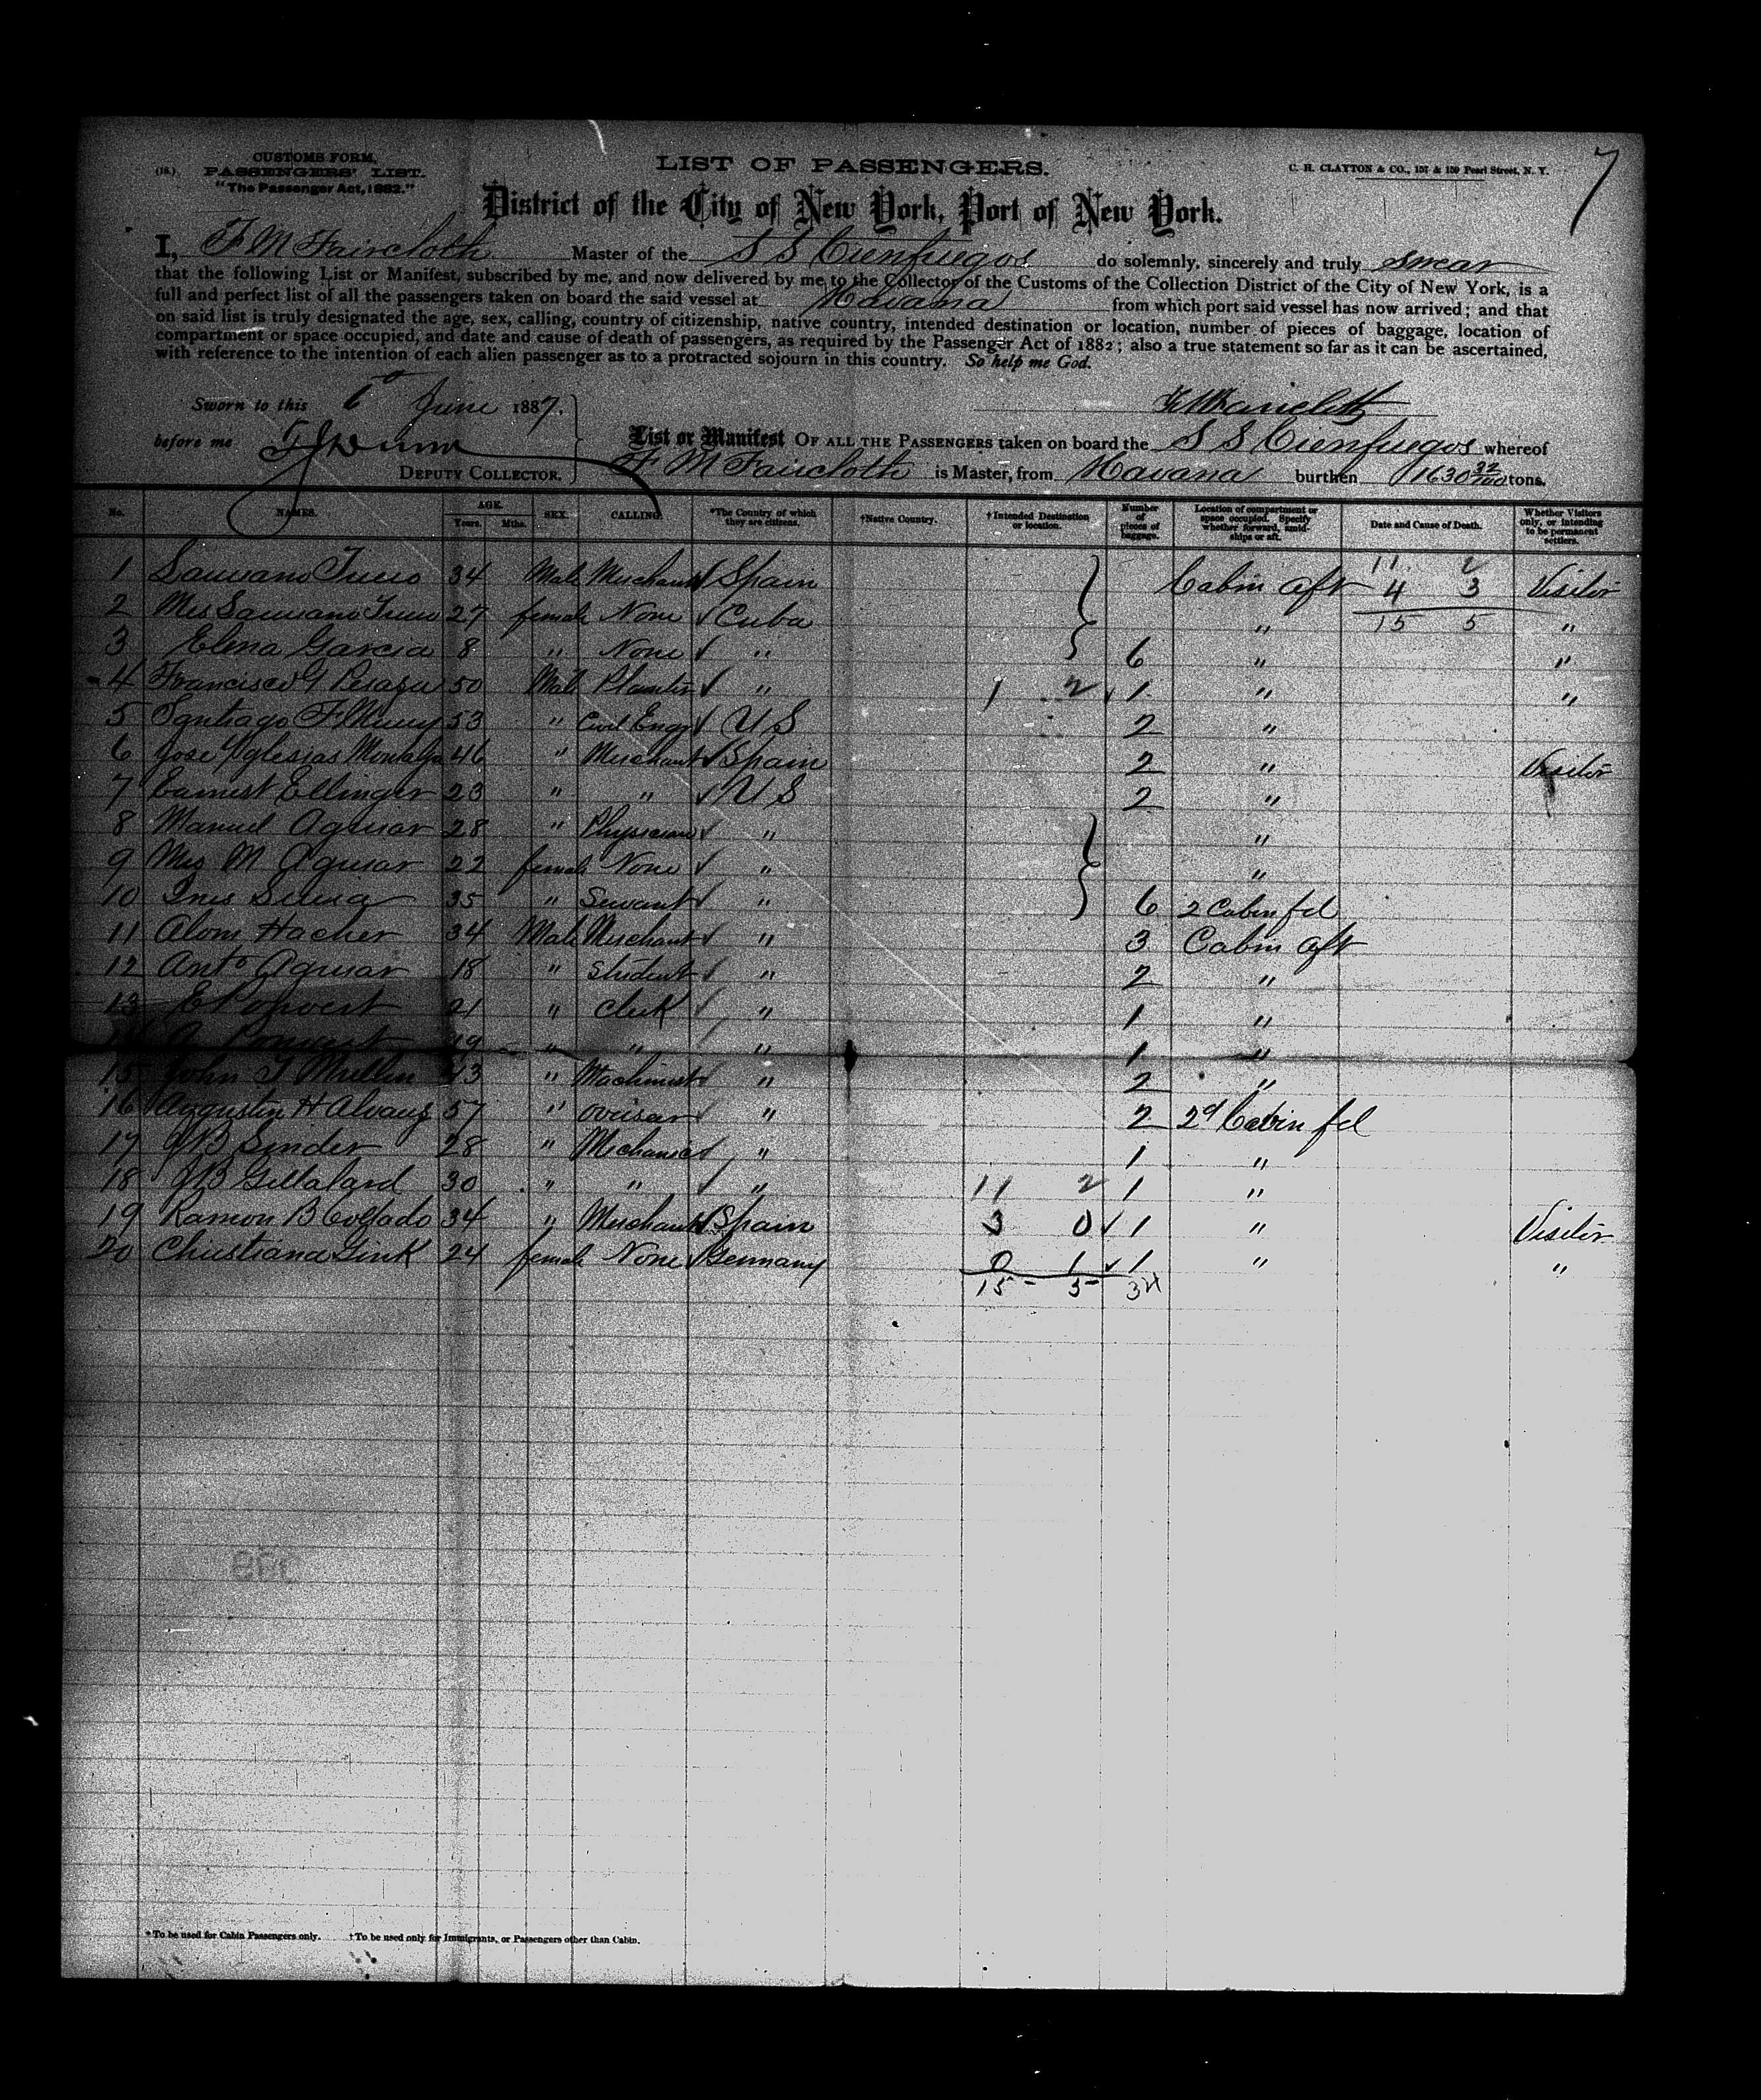 7
CUSTOMS FORM,
(18.) PASSENGERS' LIST.
"The Passenger Act, 1882."
LIST OF PASSENGERS.
C. H. CLAYTON & CO., 157 & 159 Pearl Street, N. Y.
District of the City of New York, Port of New York.
I, F M Faircloth Master of the S S Cienfuegos do solemnly, sincerely and truly swear
that the following List or Manifest, subscribed by me, and now delivered by me to the Collector of the Customs of the Collection District of the City of New York, is a
full and perfect list of all the passengers taken on board the said vessel at Havana from which port said vessel has now arrived; and that
on said list is truly designated the age, sex, calling, country of citizenship, native country, intended destination or location, number of pieces of baggage, location of
compartment or space occupied, and date and cause of death of passengers, as required by the Passenger Act of 1882; also a true statement so far as it can be ascertained,
with reference to the intention of each alien passenger as to a protracted sojourn in this country. So help me God.
Sworn to this June 1887,
F M Faircloth
before me
List or Manifest OF ALL THE PASSENGERS taken on board the S S Cienfuegos whereof
DEPUTY COLLECTOR. F M Faircloth is Master, from Havana burthen 1630 32/100 tons.
No. NAMES. AGE. Years. Mths. SEX. CALLING. *The Country of which they are citizens. †Native Country. †Intended Destination or location. Number of pieces of baggage. Location of compartment or space occupied. Specify whether forward, amidships or aft. Date and Cause of Death. Whether Visitors only, or intending to be permanent settlers.
11 2
1 34 Male Merchant Spain Cabin aft 4 3 Visitor
2 Mrs 27 female None Cuba " 15 5 "
3 Elena Garcia 8 " None " 6 " "
4 Francisco G 50 Male Planter " 1 2 1 " "
5 Santiago 53 " Civil Engr U S 2 "
6 Jose Yglesias 46 " Merchant Spain 2 " Visitor
7 Earnest Ellinger 23 " " U S 2 "
8 Manuel Aguiar 28 " Physician " "
9 Mrs M Aguiar 22 female None " "
10 Ines 35 " Servant " 6 2 Cabin fd
11 34 Male Merchant " 3 Cabin aft
12 Anto Aguiar 18 " Student " 2 "
13 E 21 " Clerk " 1 "
19 " " " 1 "
15 John 43 " Machinist " 2 "
16 Augustin H 57 " " 2 2d Cabin fd
17 28 " Mechanic " 1 "
18 30 " " " 11 2 1 "
19 Ramon B 34 " Merchant Spain 3 0 1 " Visitor
20 Christiana 24 female None Germany 0 1 1 " "
15 - 5 - 34
* To be used for Cabin Passengers only. † To be used only for Immigrants, or Passengers other than Cabin.